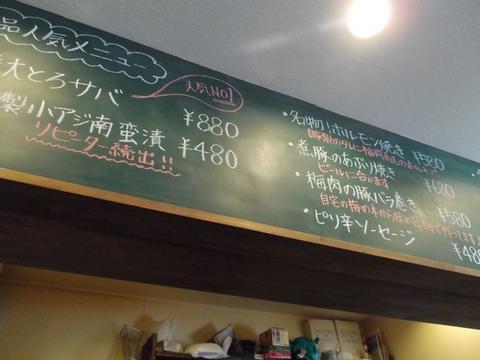 品人気メニュー
大とろサバ
人気NO1
¥880
製 小アジ南蛮漬
¥480
リピーター続出!!
・名物!ホルモン焼き
¥580
・煮豚のあぶり焼き
ビールに合います
¥680
・梅肉の豚バラ巻き
¥580
・ピリ辛ソーセージ